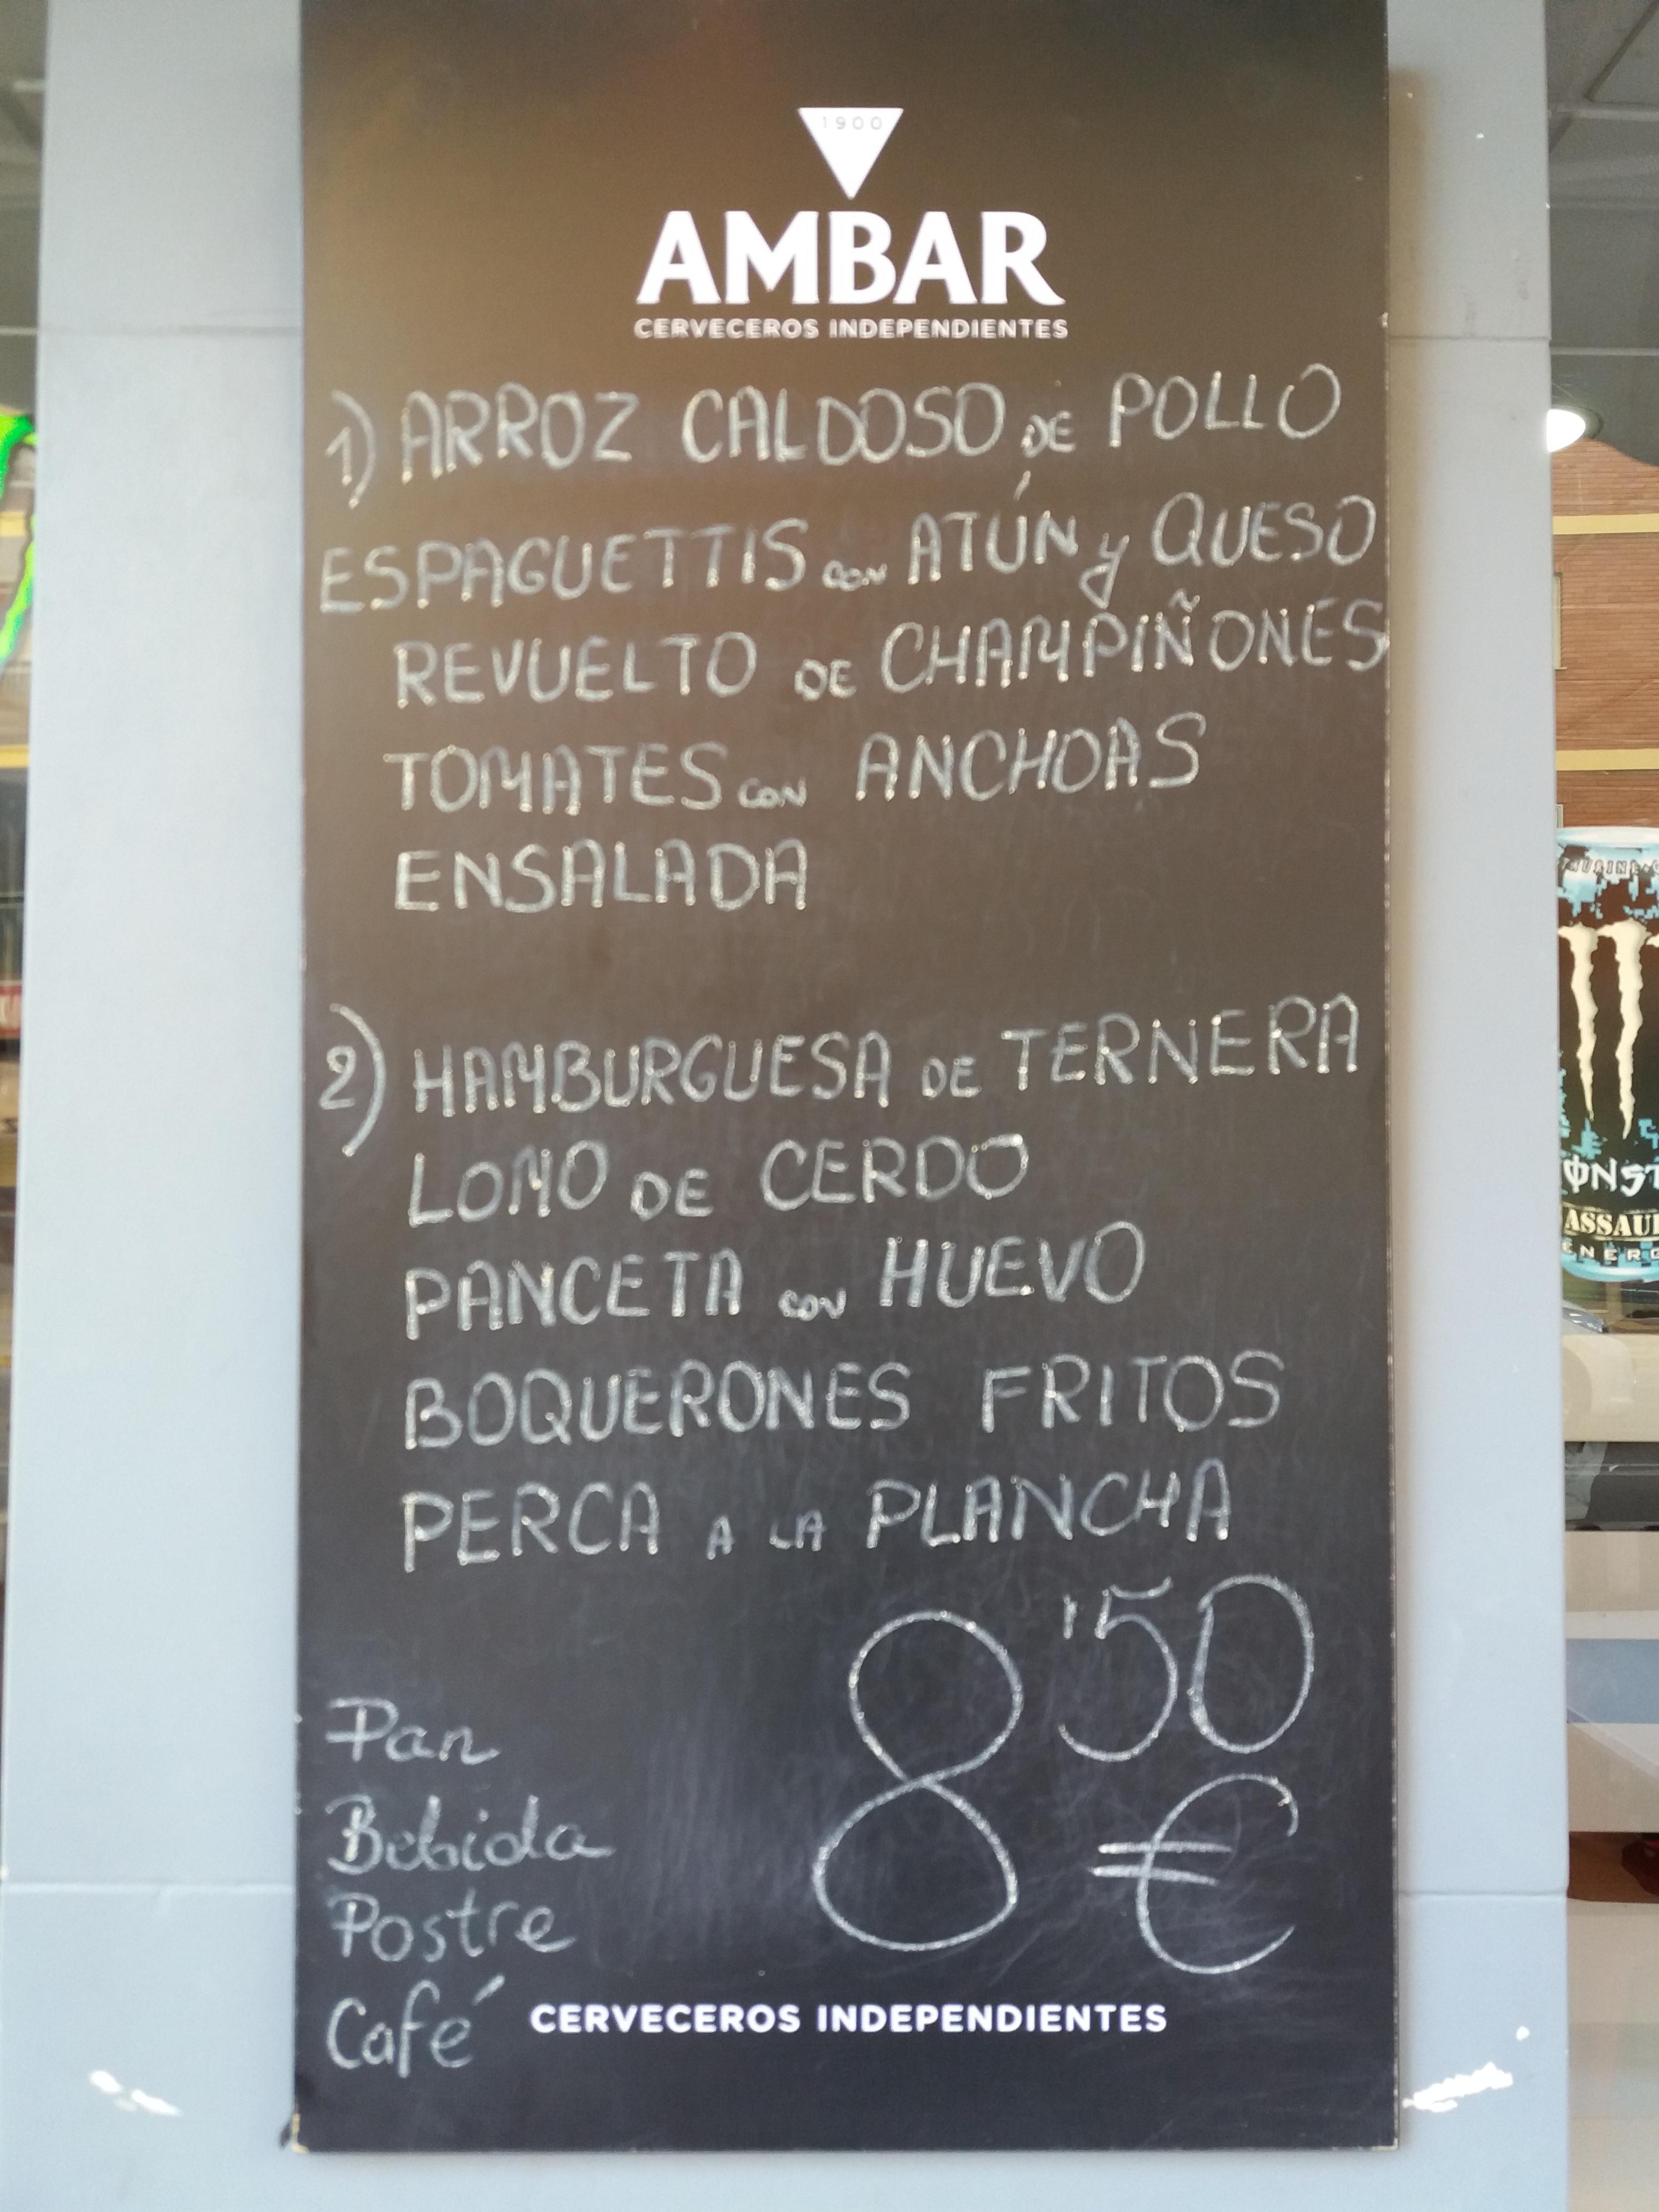 1900
AMBAR
CERVECEROS INDEPENDIENTES
1) ARROZ CALDOSO DE POLLO
ESPAGUETTIS con ATÚN y QUESO
REVUELTO DE CHAMPIÑONES
TOMATES con ANCHOAS
ENSALADA
2) HAMBURGUESA DE TERNERA
LOMO DE CERDO
PANCETA con HUEVO
BOQUERONES FRITOS
PERCA A LA PLANCHA
8'50 €
Pan
Bebida
Postre
Café
CERVECEROS INDEPENDIENTES